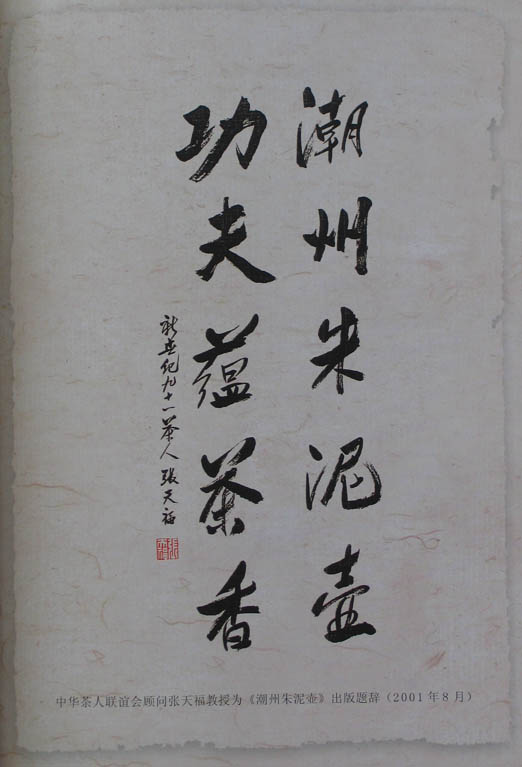 潮州朱泥壶
功夫蕴茶香
新世纪九十一茶人张天福
中华茶人联谊会顾问张天福教授为《潮州朱泥壶》出版题辞（2001年8月）